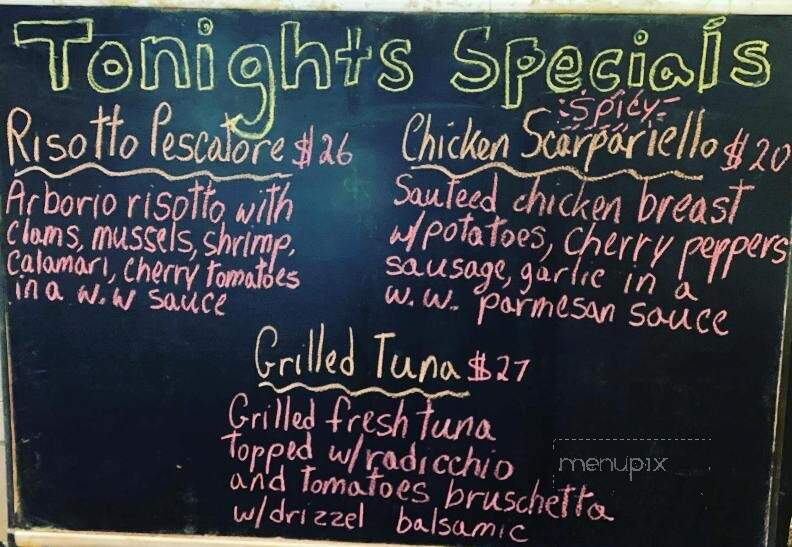 Tonights Specials
Risotto Pescatore $26
Arborio risotto with
clams, mussels, shrimp,
calamari, cherry tomatoes
in a w.w sauce
-Spicy-
Chicken Scarpariello $20
Sauteed chicken breast
w/potatoes, Cherry peppers
sausage, garlic in a
w.w. parmesan sauce
Grilled Tuna $27
Grilled fresh tuna
topped w/radicchio
and tomatoes bruschetta
w/drizzel balsamic
menupix